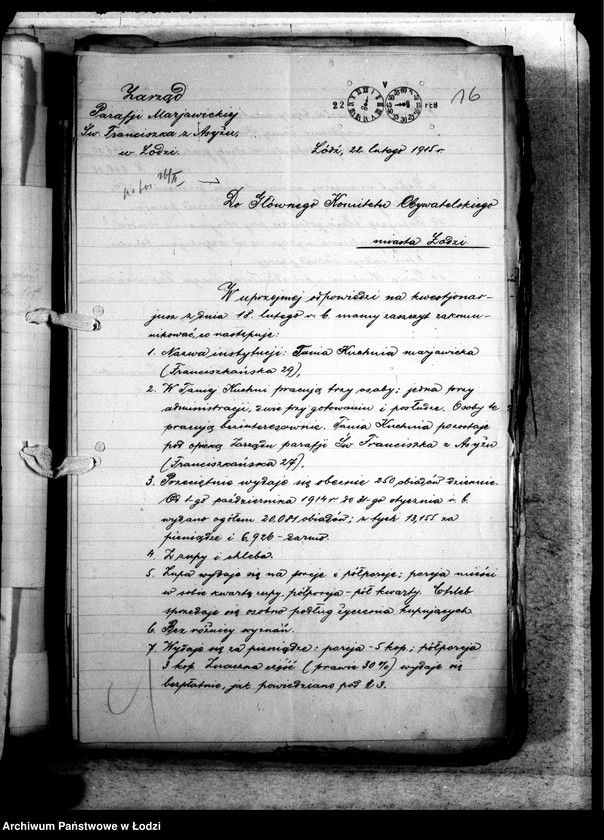 Zarząd
Parafji Marjawickiej
Św. Franciszka z Asyżu,
w Łodzi.
22 V FEB
16
Łódź, 22 lutego 1915 r.
Do Głównego Komitetu Obywatelskiego
miasta Łodzi.
W uprzejmej odpowiedzi na kwestjonar-
jusz z dnia 18. lutego r. b. mamy zaszczyt zakomu-
nikować, co następuje:
1. Nazwa instytucji: Tania Kuchnia marjawicka
(Franciszkańska 29),
2. W Taniej Kuchni pracują trzy osoby; jedna przy
administracji, dwie przy gotowaniu i posłudze. Osoby te
pracują bezinteresownie. Tania Kuchnia pozostaje
pod opieką Zarządu parafji Św. Franciszka z Asyżu
(Franciszkańska 27),
3. Przeciętnie wydaje się obecnie 250 obiadów dziennie.
Od 1-go października 1914 r. do 31-go stycznia r. b.
wydano ogółem 20,081 obiadów; z tych 13,155 za
pieniądze i 6,926 - darmo.
4. Z zupy i chleba.
5. Zupa wydaje się na porcje i półporcje; porcja mieści
w sobie kwartę zupy, półporcja - pół kwarty. Chleb
sprzedaje się osobno podług życzenia kupujących
6. Bez różnicy wyznań.
7. Wydaje się za pieniądze: porcja - 5 kop.; półporcja
3 kop. Znaczna część (prawie 30%) wydaje się
bezpłatnie, jak powiedziano pod № 3.
Archiwum Państwowe w Łodzi